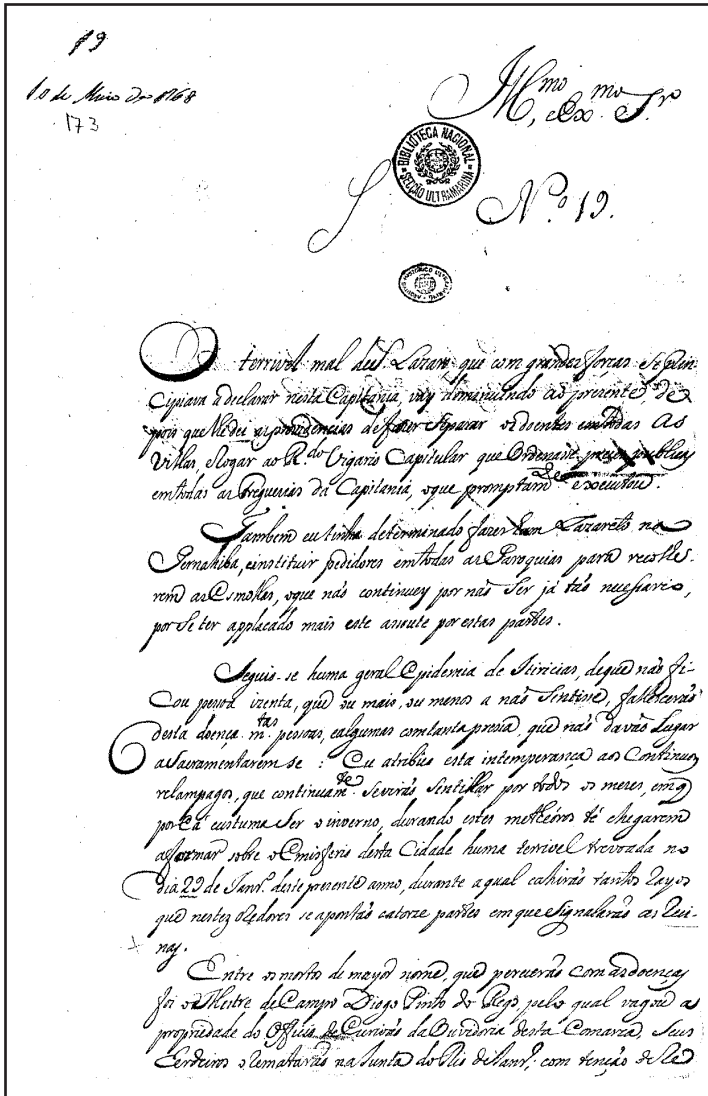 19
10 de Maio de 1768
173
Ill.mo, e Ex.mo S.r
BIBLIOTECA NACIONAL
SECÇÃO ULTRAMARINA
N.º 19.
O terrivel mal de S. Lazaro que com grandes forças se prin
cipiava a declarar nesta Capitania, vay diminuindo ao presente, de
pois que lhe dei as providencias de fazer separar os doentes em todas as
Villas, e Rogar ao R.do Vigario Capitular que Ordenasse preces publicas
em todas as freguezias da Capitania, o que promptam.te executou.
Tambem eu tinha determinado fazer hum Lazareto na
Pernahiba, e instituir pedidores em todas as Paroquias para recolhe-
rem as Esmollas, o que não continuey por não Ser já tão necessario,
por se ter applacado mais este assoute por estas partes.
Seguio-se huma geral Epidemia de Itiricias, de que não fi-
cou pessoa izenta, que ou mais, ou menos a não Sentisse, fallecerão
desta doença m.tas pessoas, e algumas com tanta pressa, que não davão Lugar
a Sacramentarem se: Eu atribuo esta intemperança aos Continuos
relampagos, que continuam.te se virão Sentillar por todos os meses, em q
por cá custuma Ser o inverno, durando estes metheóros té chegarem
a formar sobre o Emisferio desta Cidade huma terrivel trevoada no
dia 29 de Janr.º deste presente anno, durante a qual cahirão tantos Rayos
que nestes Redores se apontão catorze partes em que Signalarão as Rui-
nas.
Entre os mortos de mayor nome, que perecerão com as doenças
foi o Mestre de Campo Diogo Pinto do Rego, pelo qual vagou a
propriedade do Officio de Escrivão da Ouvidoria desta Comarca, Seus
Erdeiros o Rematarão na Junta do Rio de Janr.º, com tenção de Re